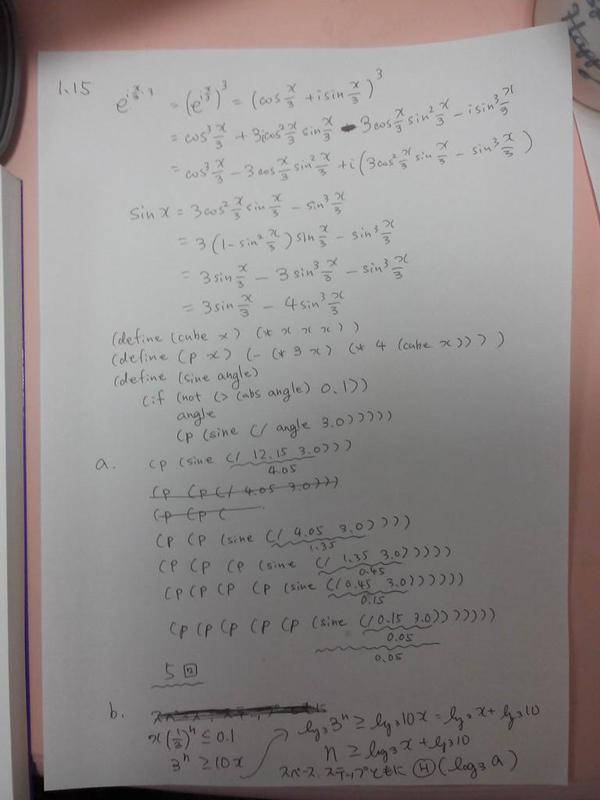 1.15
e^{i\frac{x}{3}·3} = (e^{i\frac{x}{3}})^3 = (cos\frac{x}{3} + isin\frac{x}{3})^3
= cos^3\frac{x}{3} + 3icos^2\frac{x}{3} sin\frac{x}{3} - 3cos\frac{x}{3} sin^2\frac{x}{3} - isin^3\frac{x}{3}
= cos^3\frac{x}{3} - 3cos\frac{x}{3}sin^2\frac{x}{3} + i(3cos^2\frac{x}{3} sin\frac{x}{3} - sin^3\frac{x}{3})
sin x = 3cos^2\frac{x}{3} sin\frac{x}{3} - sin^3\frac{x}{3}
= 3(1-sin^2\frac{x}{3})sin\frac{x}{3} - sin^3\frac{x}{3}
= 3sin\frac{x}{3} - 3sin^3\frac{x}{3} - sin^3\frac{x}{3}
= 3sin\frac{x}{3} - 4sin^3\frac{x}{3}
(define (cube x) (* x x x))
(define (p x) (- (* 3 x) (* 4 (cube x))))
(define (sine angle)
(if (not (> (abs angle) 0.1))
angle
(p (sine (/ angle 3.0)))))
a. (p (sine (/ 12.15 3.0)))
4.05
(p (p (/ 4.05 3.0)))
(p (p (
(p (p (sine (/ 4.05 3.0))))
1.35
(p (p (p (sine (/ 1.35 3.0)))))
0.45
(p (p (p (p (sine (/ 0.45 3.0))))))
0.15
(p (p (p (p (p (sine (/ 0.15 3.0)))))))
0.05
0.05
5回
b.
x(\frac{1}{3})^n ≤ 0.1
3^n ≥ 10x
log_3 3^n ≥ log_3 10x = log_3 x + log_3 10
n ≥ log_3 x + log_3 10
スペース、ステップともに Θ(log_3 a)
Happy